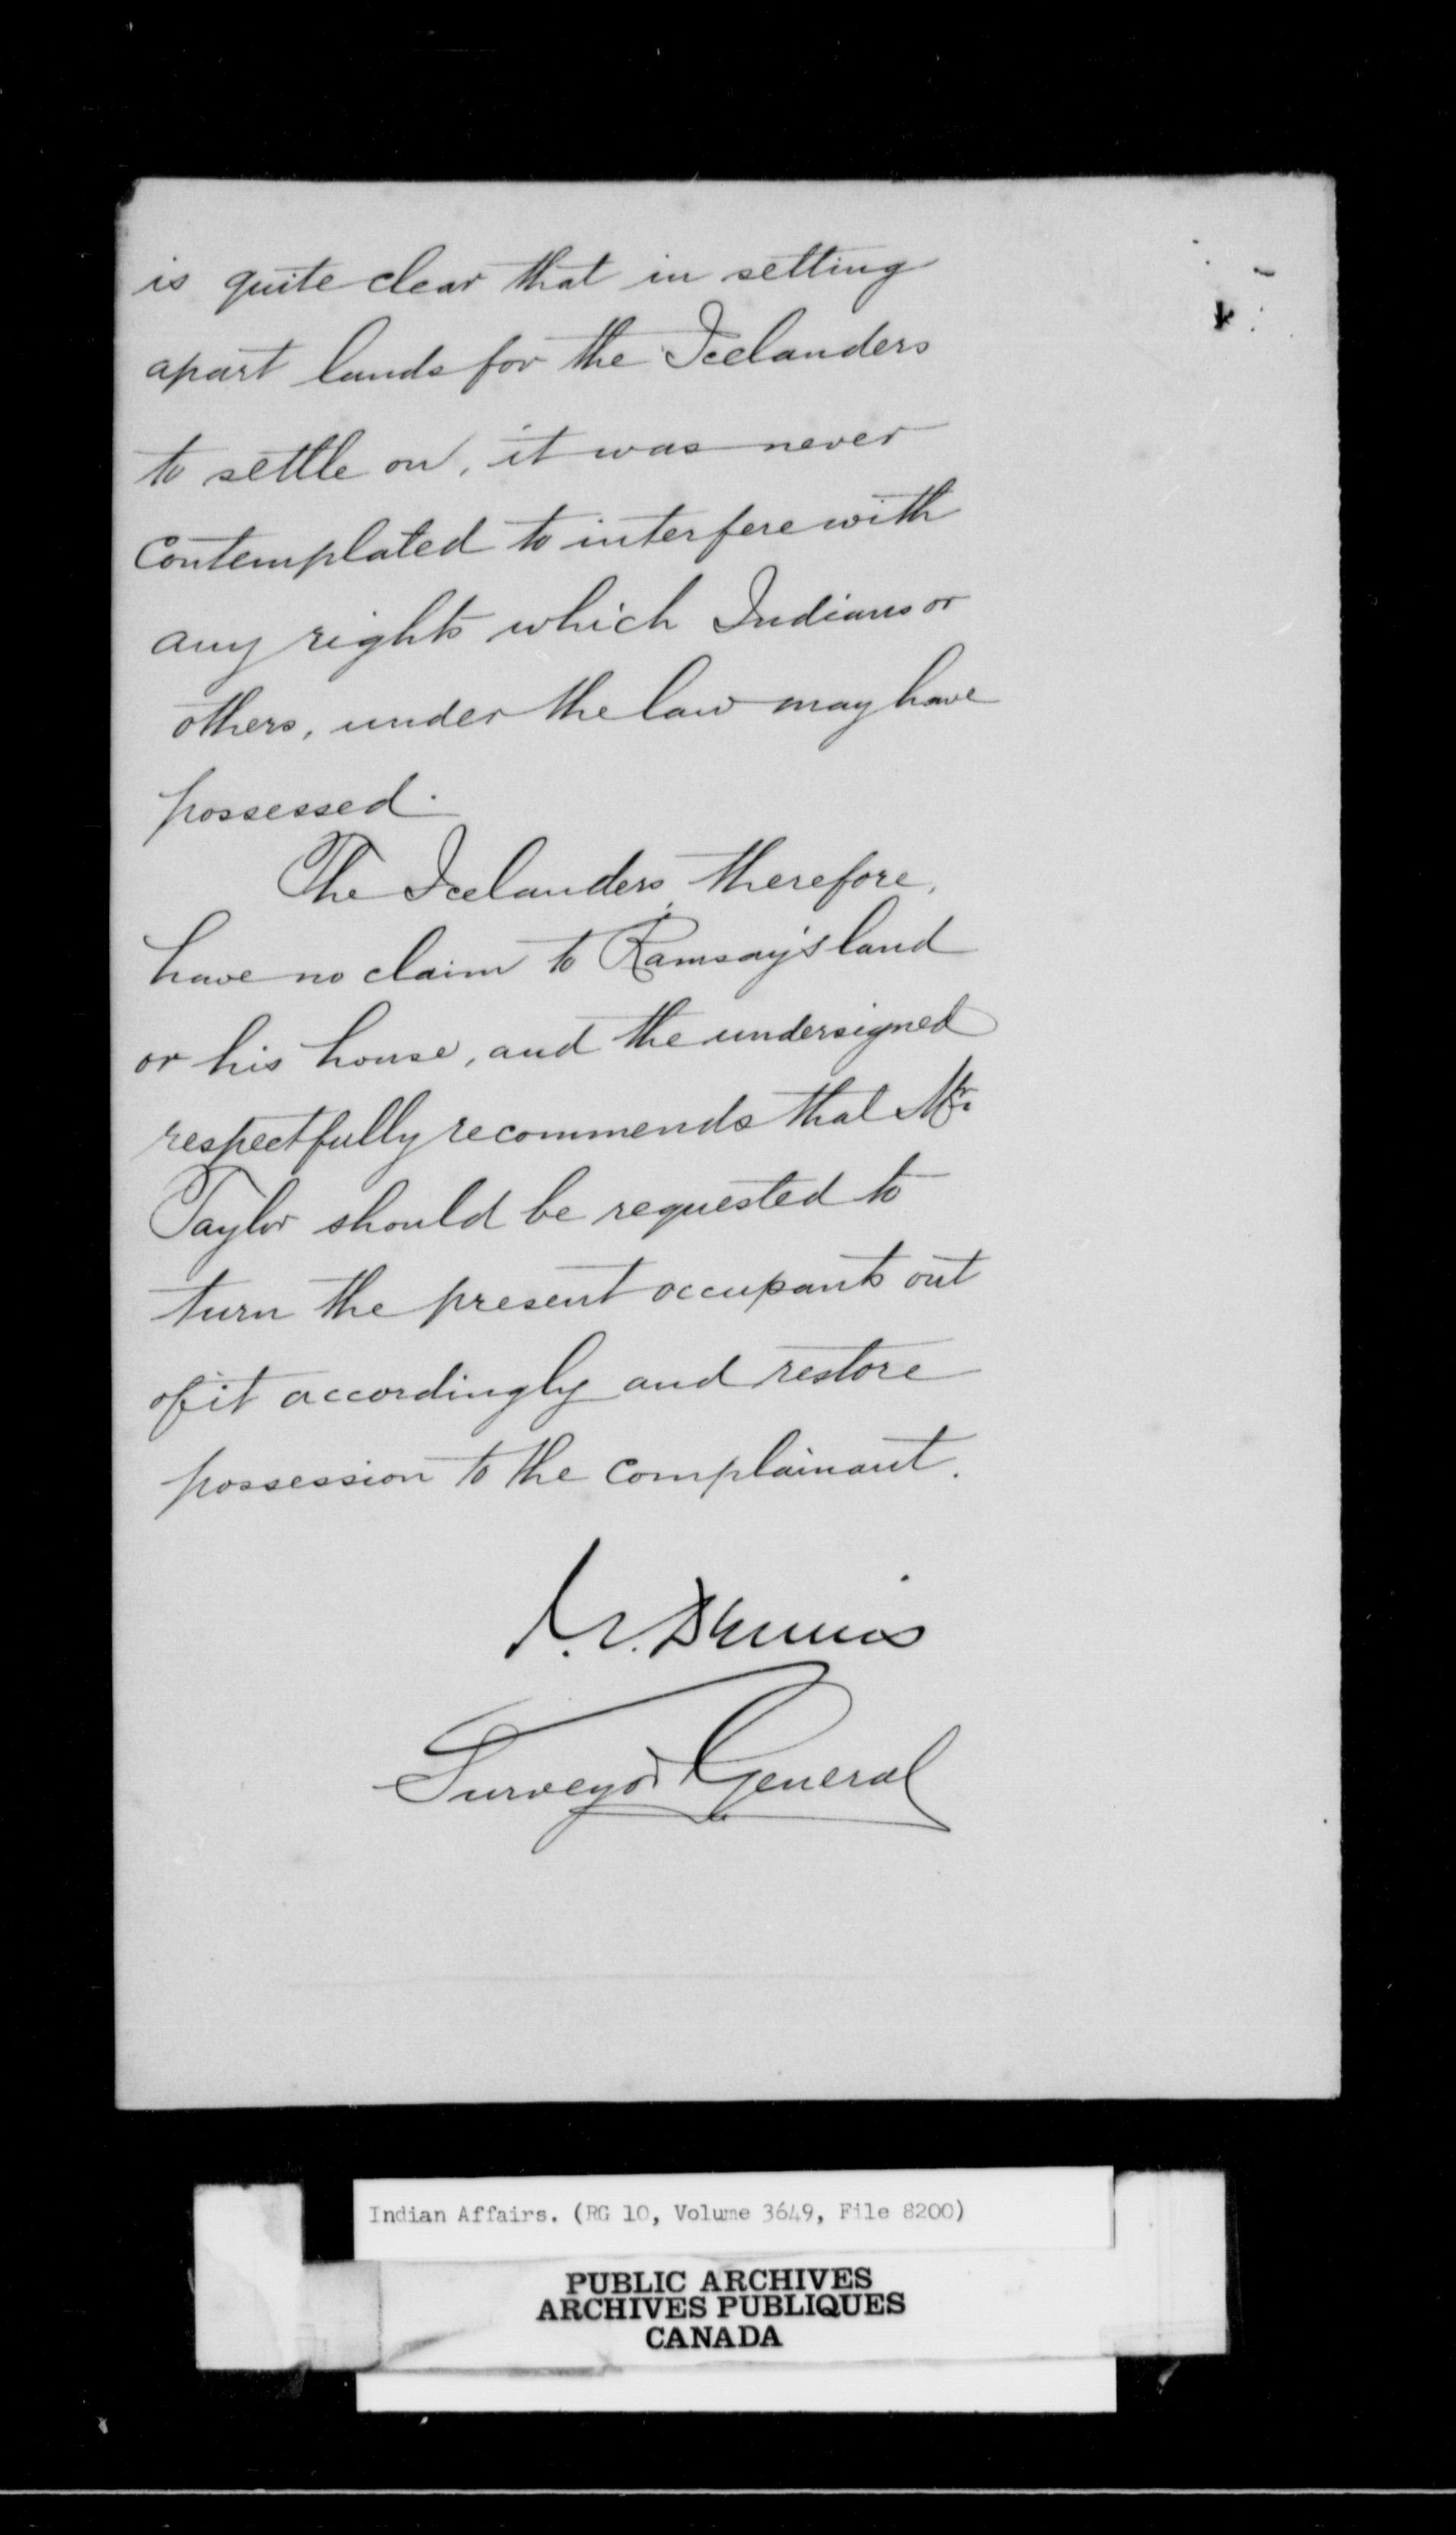 is quite clear that in setting
apart lands for the Icelanders
to settle on, it was never
contemplated to interfere with
any rights which Indians or
others, under the law may have
possessed.
The Icelanders, therefore,
have no claim to Ramsay's land
or his house, and the undersigned
respectfully recommends that Mr.
Taylor should be requested to
turn the present occupants out
of it accordingly and restore
possession to the complainant.
Dennis
Surveyor General
Indian Affairs. (RG 10, Volume 3649, File 8200)
PUBLIC ARCHIVES
ARCHIVES PUBLIQUES
CANADA